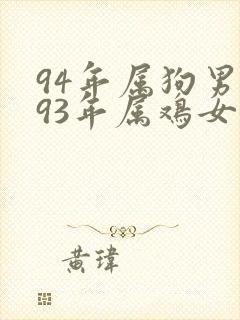 94年属狗男
93年属鸡女
黄瑋